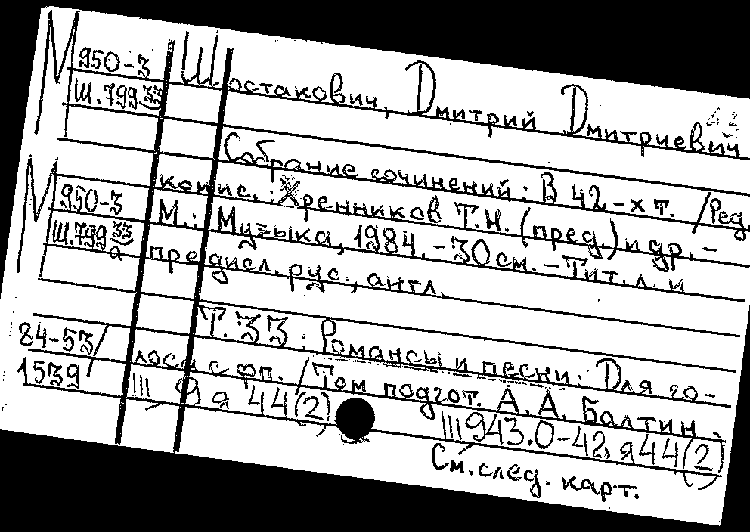 М 950-3 Шостакович, Дмитрий Дмитриевич
Ш.799 33
Собрание сочинений: В 42-х т. /Ред.
М 950-3 комис.: Хренников Т.Н. (пред.) и др. -
Ш.799 33 М.: Музыка, 1984. -30см. -Тит. л. и
а предисл. рус., англ.
Т.33: Романсы и песни: Для го-
84-53/ лоса с фп. /Том подгот. А.А. Балтин.
1539 Ш 9 я 44(2) Ш943.0-42 я44(2)
См. след. карт.